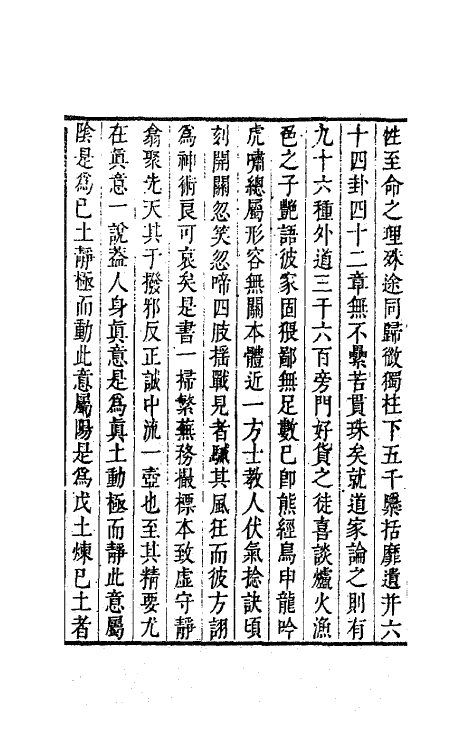 性至命之理殊途同歸微獨柱下五千櫽括靡遺并六
十四卦四十二章無不纍若貫珠矣就道家論之則有
九十六種外道三千六百旁門好貨之徒喜談爐火漁
色之子艷語彼家固猥鄙無足數已即熊經鳥申龍吟
虎嘯總屬形容無關本體近一方士教人伏氣捻訣頃
刻開關忽笑忽啼四肢搖戰見者駴其風狂而彼方詡
為神術良可哀矣是書一掃繁蕪務撮標本致虛守靜
翕聚先天其于撥邪反正誠中流一壺也至其精要尤
在眞意一說葢人身眞意是為眞土動極而靜此意屬
陰是為己土靜極而動此意屬陽是為戊土煉己土者